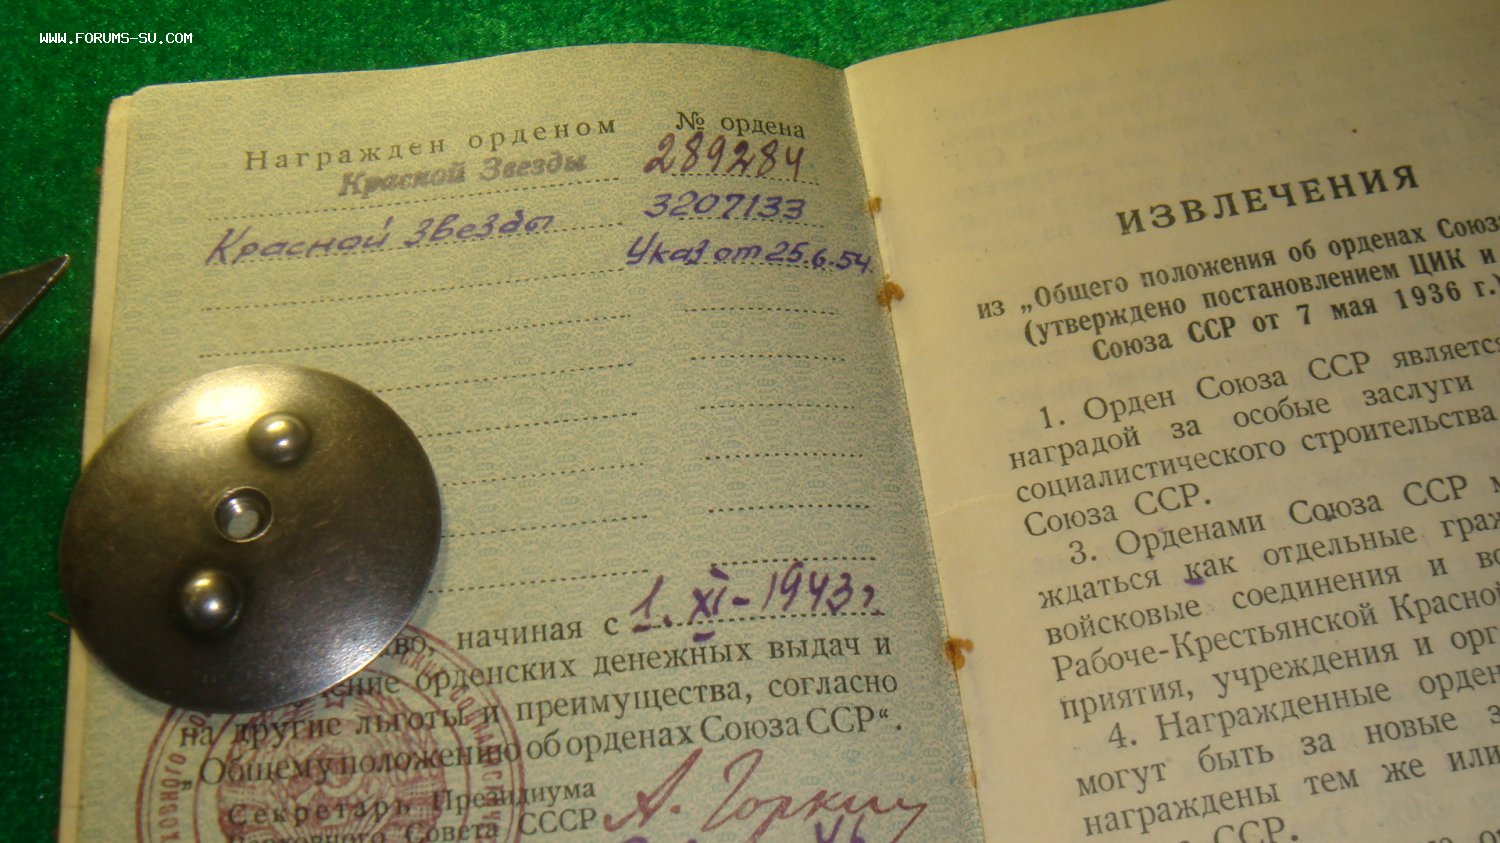 WWW.FORUMS-SU.COM
Награжден орденом № ордена
Красной Звезды 289284
Красной Звезды 3207133
Указ от 25.6.54
во, начиная с 1. XI - 1943 г.
ение орденских денежных выдач и
на другие льготы и преимущества, согласно
„Общему положению об орденах Союза ССР“.
Секретарь Президиума
Верховного Совета СССР А. Горкин
ИЗВЛЕЧЕНИЯ
из „Общего положения об орденах Союза
(утверждено постановлением ЦИК и
Союза ССР от 7 мая 1936 г.)
1. Орден Союза ССР является
наградой за особые заслуги
социалистического строительства
Союза ССР.
3. Орденами Союза ССР м
ждаться как отдельные граж
войсковые соединения и во
Рабоче-Крестьянской Красной
приятия, учреждения и орг
4. Награжденные орден
могут быть за новые з
награждены тем же или
ССР.